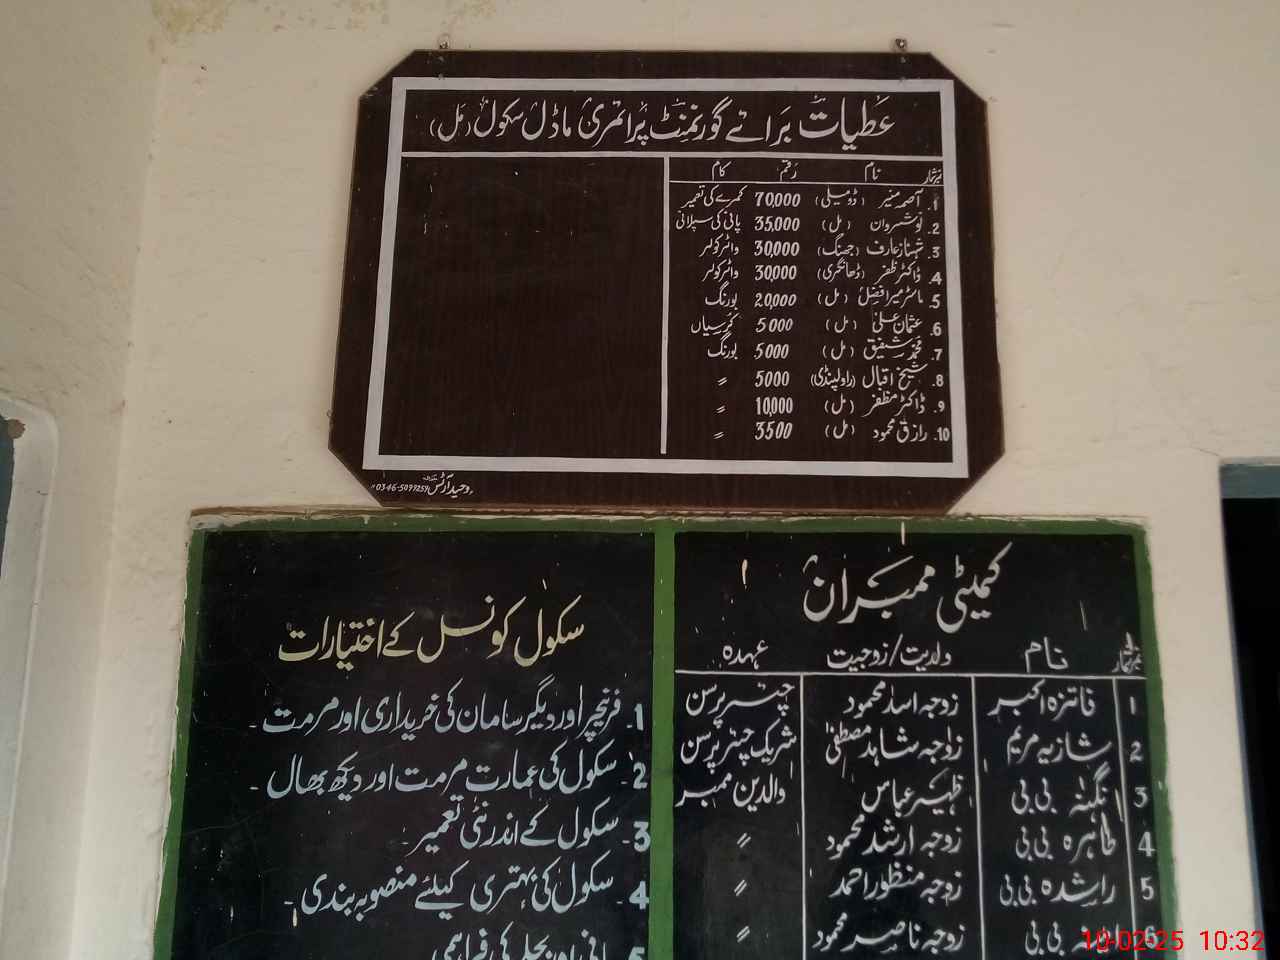 عطیات برائے گورنمنٹ پرائمری ماڈل سکول (مل)
نمبر شمار نام رقم کام
1. آصمہ منیر (ڈومیلی) 70,000 کمرے کی تعمیر
2. نوشیروان (مل) 35,000 پانی کی سپلائی
3. شہناز عارف (جھنگ) 30,000 واٹر کولر
4. ڈاکٹر ظفر (ڈھانگری) 30,000 واٹر کولر
5. ماسٹر میر افضل (مل) 20,000 بورنگ
6. عثمان علی (مل) 5000 کرسیاں
7. محمد شفیق (مل) 5000 بورنگ
8. شیخ اقبال (راولپنڈی) 5000 〃
9. ڈاکٹر مظفر (مل) 10,000 〃
10. رازق محمود (مل) 3500 〃
وحید آرٹس 0346-5099259
کمیٹی ممبران
نمبر شمار نام ولدیت/زوجیت عہدہ
1 فائزہ اکبر زوجہ اسد محمود چیئر پرسن
2 شازیہ مریم زوجہ شاہد مصطفیٰ شریک چیئر پرسن
3 نگینہ بی بی ظہیر عباس والدین ممبر
4 طاہرہ بی بی زوجہ ارشد محمود 〃
5 راشدہ بی بی زوجہ منظور احمد 〃
6 بی بی زوجہ ناصر محمود 〃
سکول کونسل کے اختیارات
1. فرنیچر اور دیگر سامان کی خریداری اور مرمت -
2. سکول کی عمارت مرمت اور دیکھ بھال -
3. سکول کے اندر نئی تعمیر -
4. سکول کی بہتری کیلئے منصوبہ بندی -
5. پانی اور بجلی کی فراہمی
10-02-25 10:32